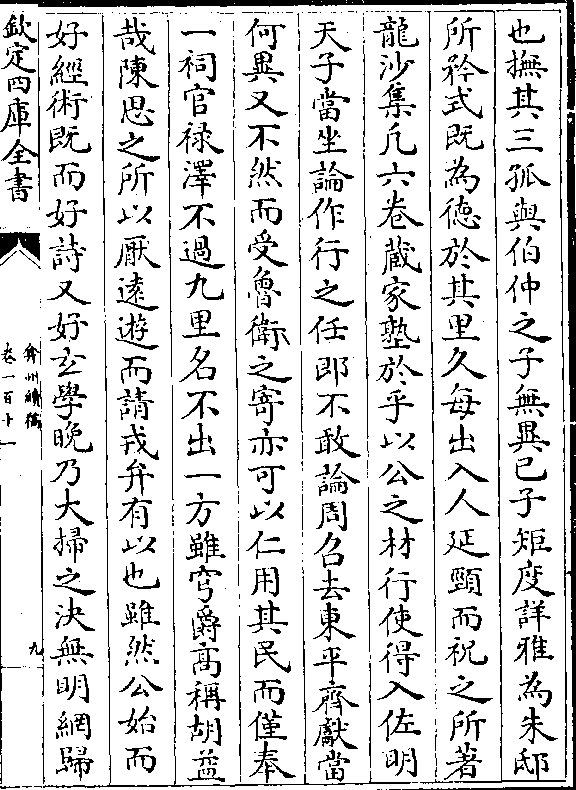 也撫其三孤與伯仲之子無異已子矩度詳雅為朱邸
所矜式既為德於其里久每出入人延頸而祝之所著
龍沙集凡六卷蔵家塾於乎以公之材行使得入佐明
天子當坐論作行之任即不敢論周召去東平齊獻當
何異又不然而受魯衛之寄亦可以仁用其民而僅奉
一祠官禄澤不過九里名不出一方雖穹爵髙稱胡益
哉陳思之所以厭逺遊而請戎弁有以也雖然公始而
好經術既而好詩又好𤣥學晚乃大掃之決無明網歸
欽定四庫全書
弇州續稿
卷一百十一
九